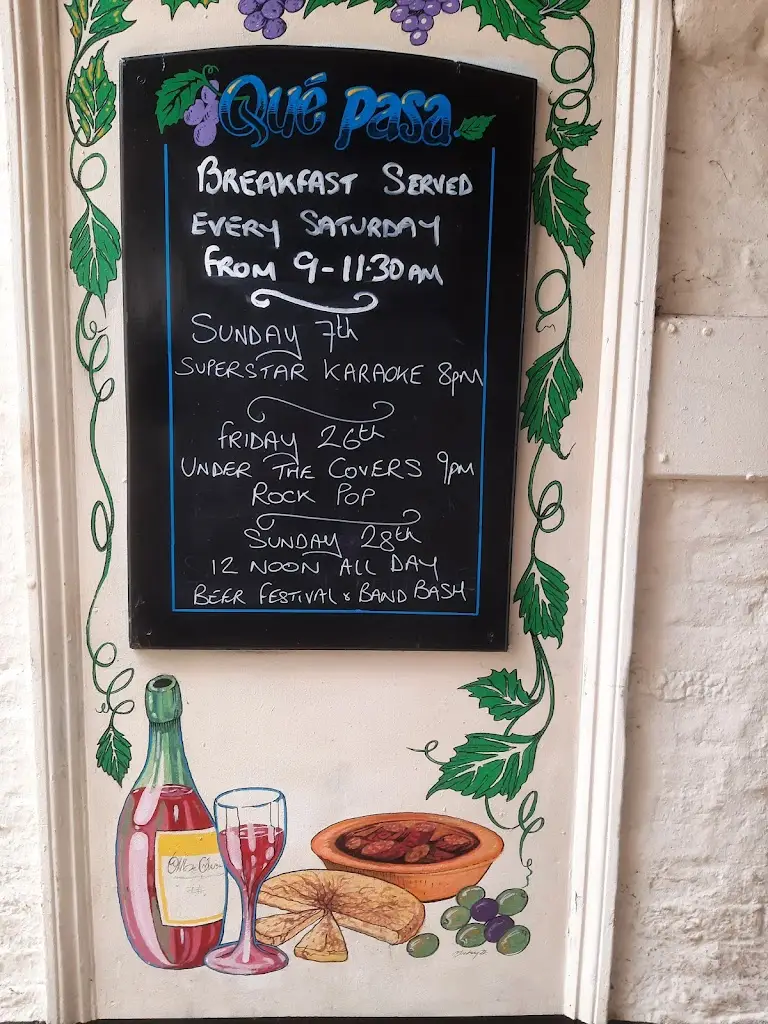 Qué pasa
BREAKFAST SERVED
EVERY SATURDAY
FROM 9-11.30AM
SUNDAY 7th
SUPERSTAR KARAOKE 8pm
FRIDAY 26th
UNDER THE COVERS 9pm
ROCK POP
SUNDAY 28th
12 NOON ALL DAY
BEER FESTIVAL & BAND BASH